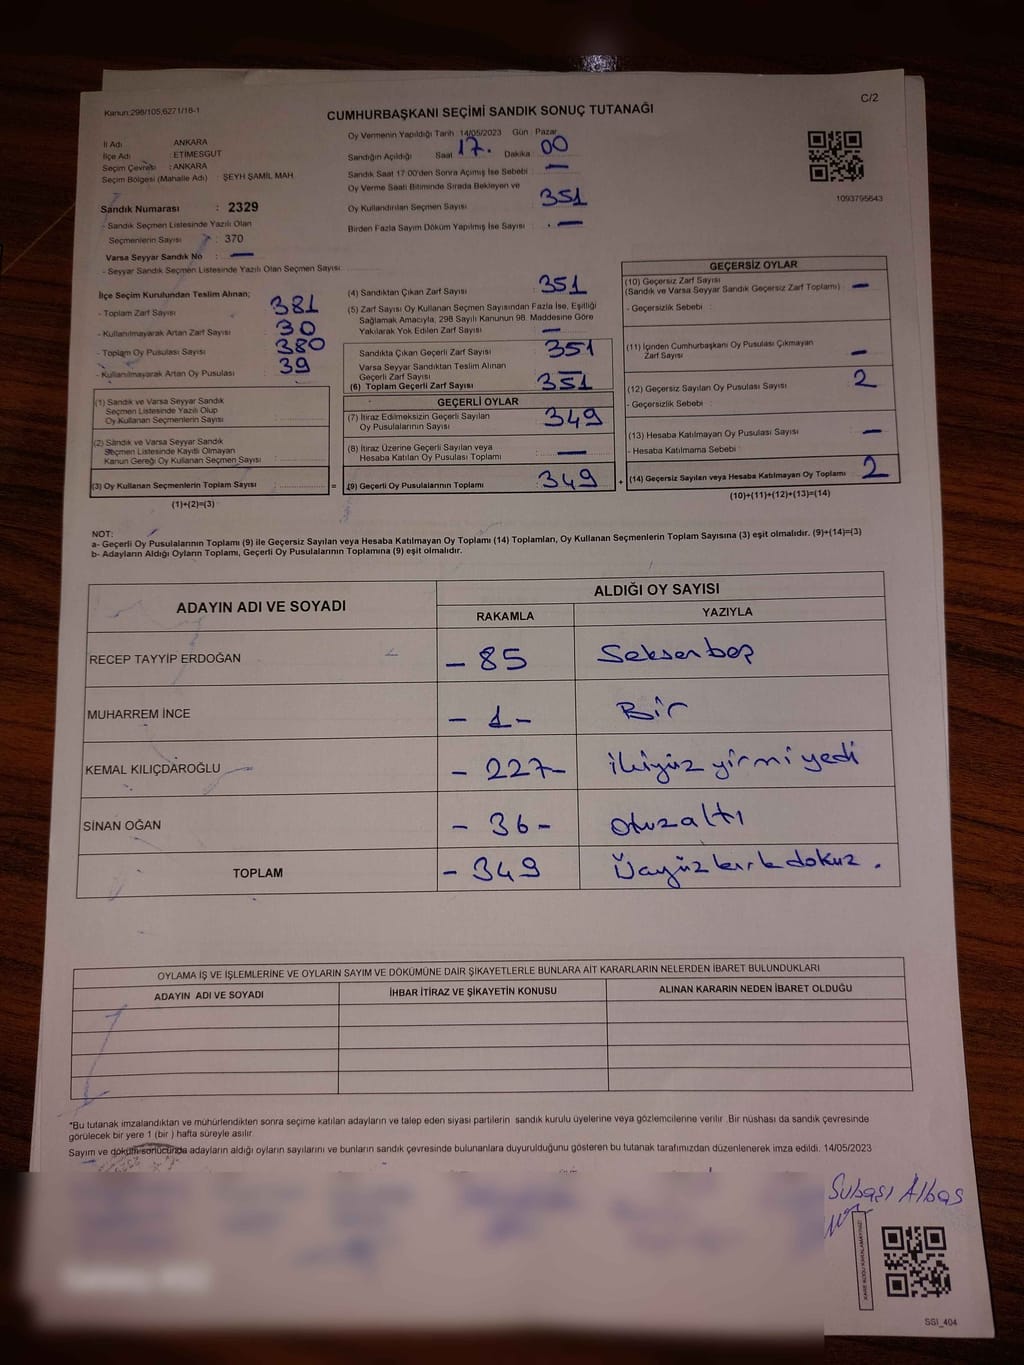 Kanun:298/105,6271/18-1
C/2
CUMHURBAŞKANI SEÇİMİ SANDIK SONUÇ TUTANAĞI
İl Adı ANKARA
İlçe Adı : ETİMESGUT
Seçim Çevresi : ANKARA
Seçim Bölgesi (Mahalle Adı) : ŞEYH ŞAMİL MAH
Sandık Numarası : 2329
- Sandık Seçmen Listesinde Yazılı Olan
Seçmenlerin Sayısı : 370
Varsa Seyyar Sandık No : —
- Seyyar Sandık Seçmen Listesinde Yazılı Olan Seçmen Sayısı
Oy Vermenin Yapıldığı Tarih 14/05/2023 Gün : Pazar
Sandığın Açıldığı Saat 17. Dakika 00
Sandık Saat 17:00'den Sonra Açılmış İse Sebebi : —
Oy Verme Saati Bitiminde Sırada Bekleyen ve
Oy Kullandırılan Seçmen Sayısı : 351
Birden Fazla Sayım Döküm Yapılmış İse Sayısı : —
1093795643
İlçe Seçim Kurulundan Teslim Alınan;
- Toplam Zarf Sayısı : 381
- Kullanılmayarak Artan Zarf Sayısı : 30
- Toplam Oy Pusulası Sayısı : 380
- Kullanılmayarak Artan Oy Pusulası : 39
(1) Sandık ve Varsa Seyyar Sandık
Seçmen Listesinde Yazılı Olup
Oy Kullanan Seçmenlerin Sayısı :
(2) Sandık ve Varsa Seyyar Sandık
Seçmen Listesinde Kayıtlı Olmayan
Kanun Gereği Oy Kullanan Seçmen Sayısı :
(3) Oy Kullanan Seçmenlerin Toplam Sayısı : =
(1)+(2)=(3)
(4) Sandıktan Çıkan Zarf Sayısı : 351
(5) Zarf Sayısı Oy Kullanan Seçmen Sayısından Fazla İse, Eşitliği
Sağlamak Amacıyla, 298 Sayılı Kanunun 98. Maddesine Göre
Yakılarak Yok Edilen Zarf Sayısı : —
Sandıkta Çıkan Geçerli Zarf Sayısı : 351
Varsa Seyyar Sandıktan Teslim Alınan
Geçerli Zarf Sayısı : —
(6) Toplam Geçerli Zarf Sayısı : 351
GEÇERLİ OYLAR
(7) İtiraz Edilmeksizin Geçerli Sayılan
Oy Pusulalarının Sayısı : 349
(8) İtiraz Üzerine Geçerli Sayılan veya
Hesaba Katılan Oy Pusulası Toplamı : —
(9) Geçerli Oy Pusulalarının Toplamı : 349 +
GEÇERSİZ OYLAR
(10) Geçersiz Zarf Sayısı
(Sandık ve Varsa Seyyar Sandık Geçersiz Zarf Toplamı) : —
- Geçersizlik Sebebi :
(11) İçinden Cumhurbaşkanı Oy Pusulası Çıkmayan
Zarf Sayısı : —
(12) Geçersiz Sayılan Oy Pusulası Sayısı : 2
- Geçersizlik Sebebi :
(13) Hesaba Katılmayan Oy Pusulası Sayısı : —
- Hesaba Katılmama Sebebi :
(14) Geçersiz Sayılan veya Hesaba Katılmayan Oy Toplamı : 2
(10)+(11)+(12)+(13)=(14)
NOT:
a- Geçerli Oy Pusulalarının Toplamı (9) ile Geçersiz Sayılan veya Hesaba Katılmayan Oy Toplamı (14) Toplamları, Oy Kullanan Seçmenlerin Toplam Sayısına (3) eşit olmalıdır. (9)+(14)=(3)
b- Adayların Aldığı Oyların Toplamı, Geçerli Oy Pusulalarının Toplamına (9) eşit olmalıdır.
ADAYIN ADI VE SOYADI
ALDIĞI OY SAYISI
RAKAMLA YAZIYLA
RECEP TAYYİP ERDOĞAN - 85 Seksenbeş
MUHARREM İNCE - 1 - Bir
KEMAL KILIÇDAROĞLU - 227 - ikiyüz yirmi yedi
SİNAN OĞAN - 36 - otuzaltı
TOPLAM - 349 Üçyüz kırk dokuz .
OYLAMA İŞ VE İŞLEMLERİNE VE OYLARIN SAYIM VE DÖKÜMÜNE DAİR ŞİKAYETLERLE BUNLARA AİT KARARLARIN NELERDEN İBARET BULUNDUKLARI
ADAYIN ADI VE SOYADI İHBAR İTİRAZ VE ŞİKAYETİN KONUSU ALINAN KARARIN NEDEN İBARET OLDUĞU
*Bu tutanak imzalandıktan ve mühürlendikten sonra seçime katılan adayların ve talep eden siyasi partilerin sandık kurulu üyelerine veya gözlemcilerine verilir. Bir nüshası da sandık çevresinde
görülecek bir yere 1 (bir ) hafta süreyle asılır.
Sayım ve döküm sonucunda adayların aldığı oyların sayılarını ve bunların sandık çevresinde bulunanlara duyurulduğunu gösteren bu tutanak tarafımızdan düzenlenerek imza edildi. 14/05/2023
Subaşı Albaş
KARE KODU KARALAMAYINIZ!
SSI_404